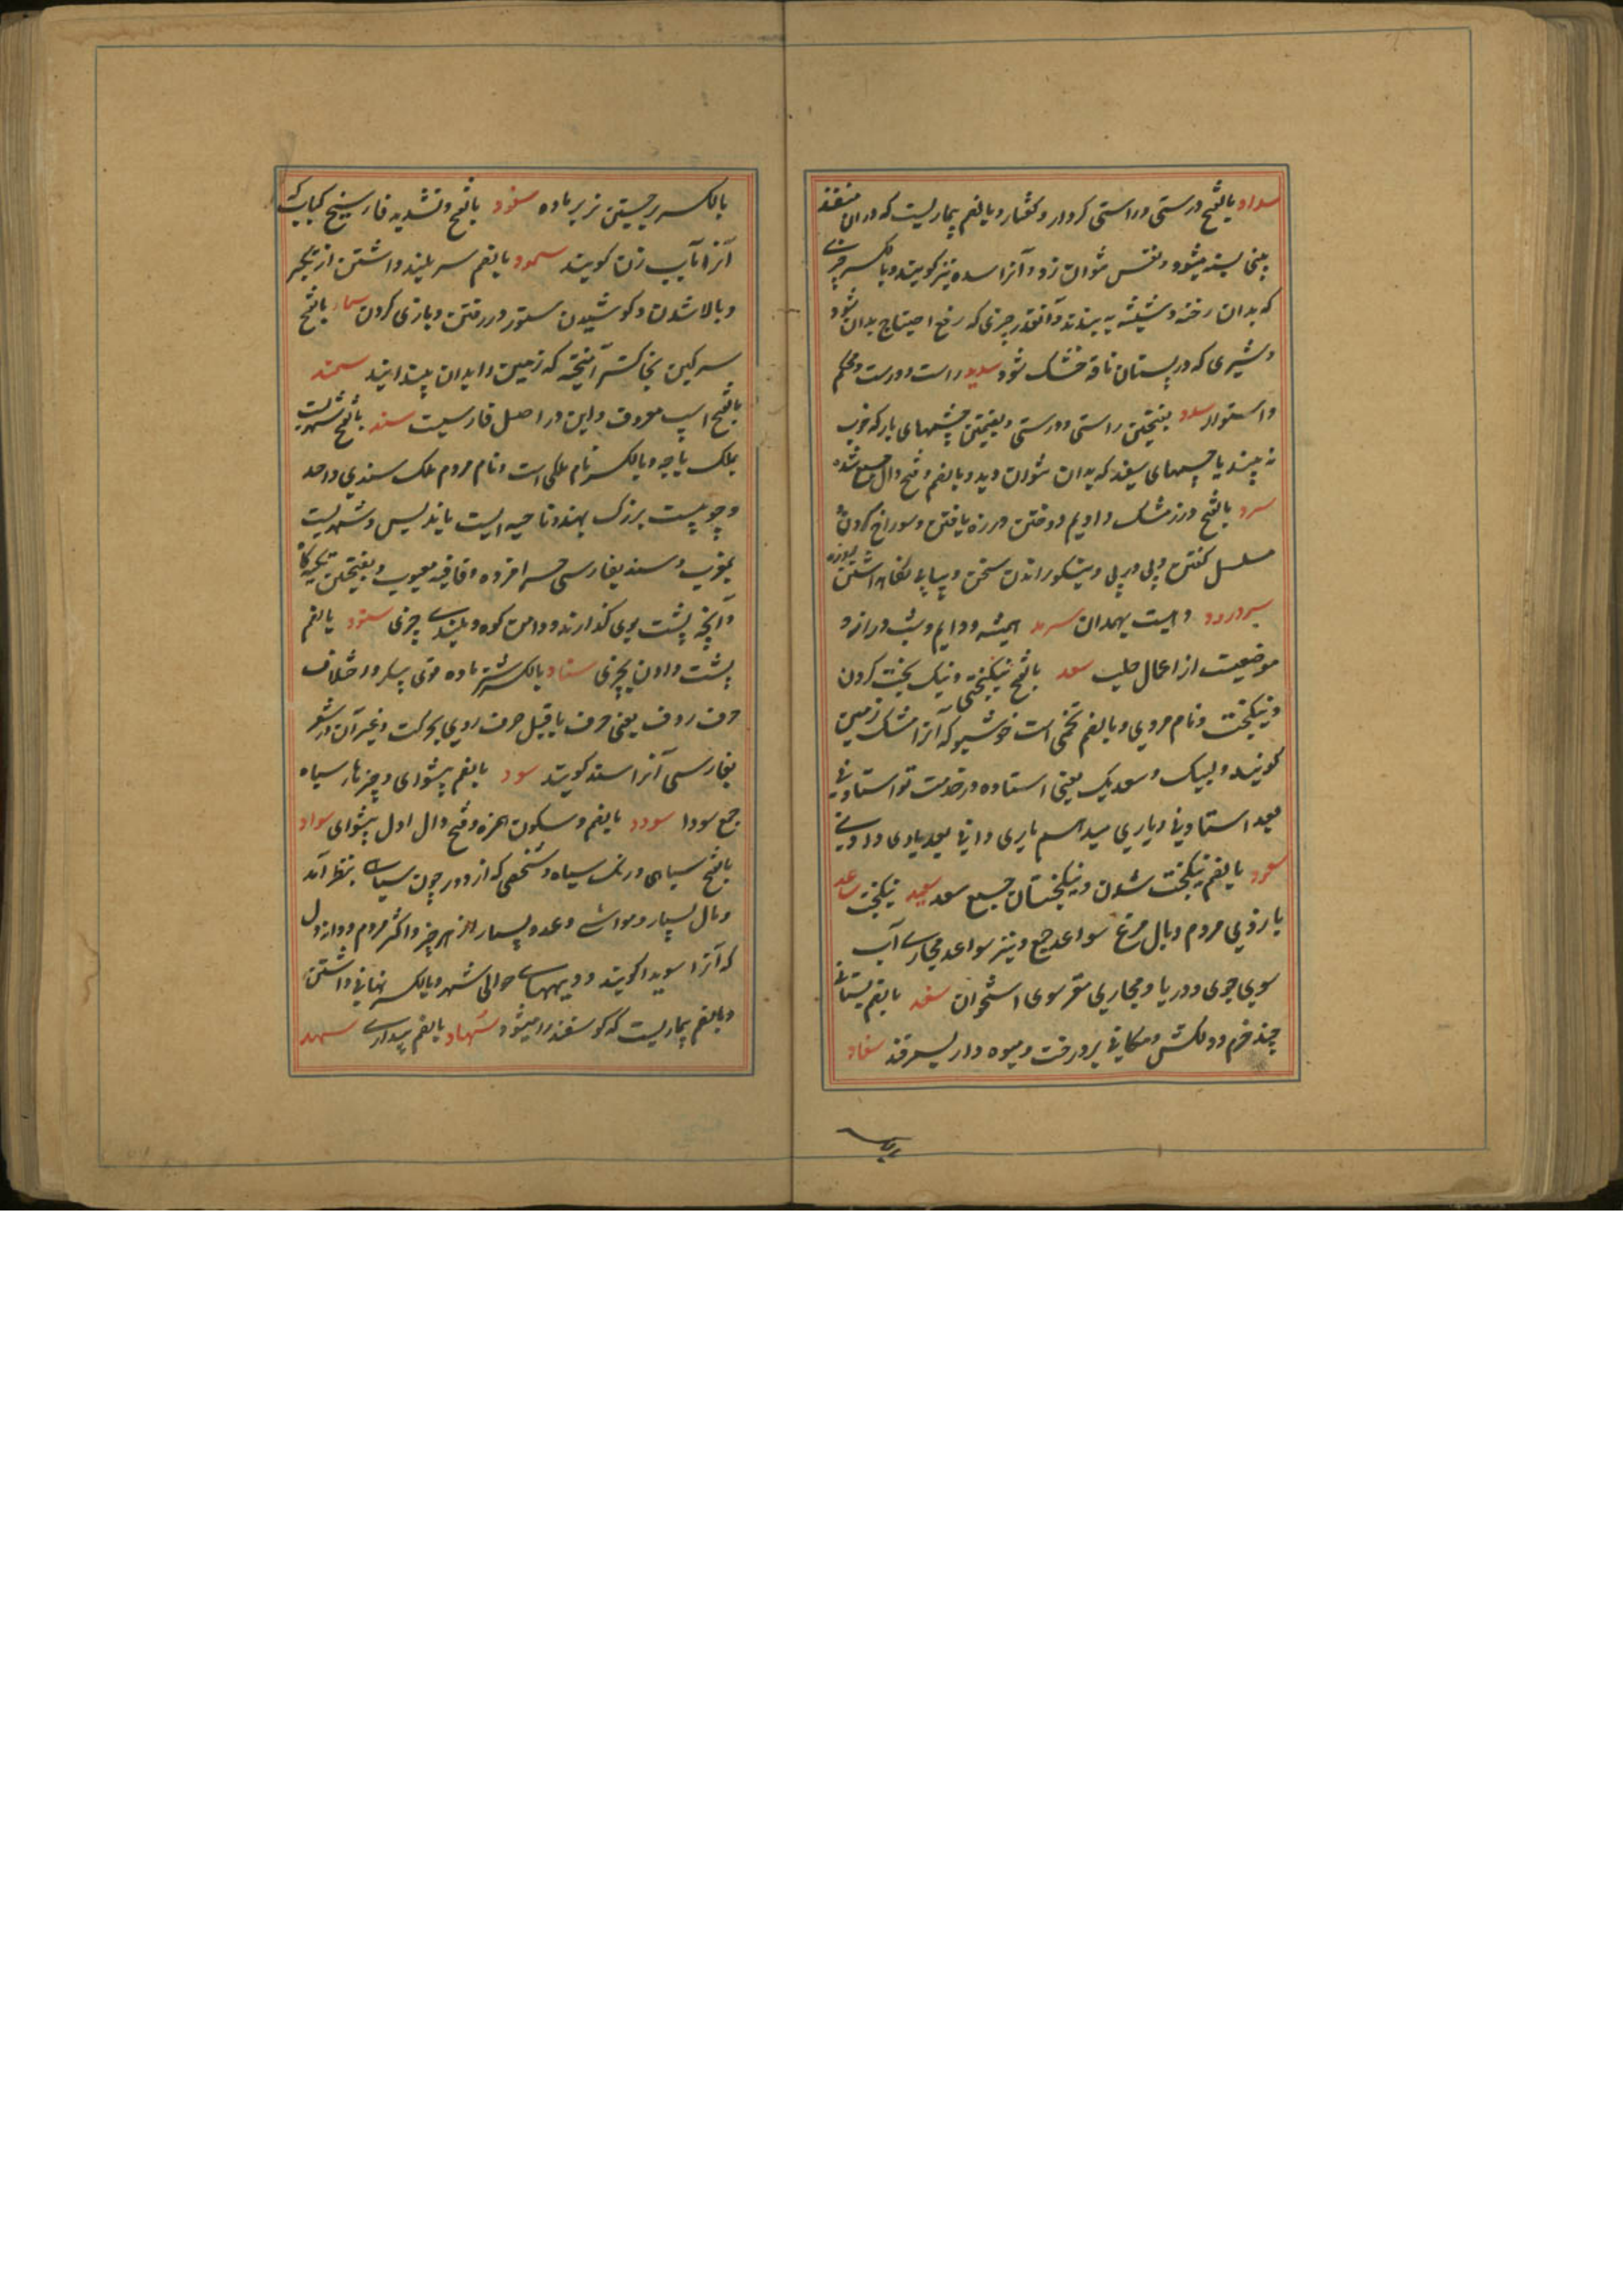 سداد بالفتح درستی و راستی کردار و گفتار و بالضم بیماریست که در ان منفذ
بینی بسته میشود و نفس نتوان زد و آنرا سده نیز گویند و بالکسر چیزی
که بدان رخنه و شیشه به بندند و آنقدر چیزی که رفع احتیاج بدان شود
و شیری که در پستان ناقه خشک شود سدید راست و درست و محکم
و استوار سدد بفتحتین راستی و درستی و بضمتین چشمهای باز که خوب
نه بیند یا چشمهای سفید که بدان نتوان دید و بالضم و فتح دال جمع سده
سرد بالفتح درز مشک و ادیم دوختن و زره بافتن و سوراخ کردن و
مسلسل گفتن و پی در پی و نیکو راندن سخن و پیاپی نگاه داشتن روزه
سردرود دهیست بهمدان سرمد همیشه و دایم و شب دراز و
موضعیست از اعمال حلب سعد بالفتح نیکبختی و نیک بخت کردن
و نیکبخت و نام مردی و بالضم تخمی است خوشبو که آنرا مشک زمین
گویند و لبیک و سعدیک یعنی استاده در خدمت تو استادنی
بعد استادنی و یاری میدهم یاری دانی بعد یاری دادنی
سعود بالضم نیکبخت شدن و نیکبختان جمع سعد سعید نیکبخت ساعد
بازوی مردم و بال مرغ سواعد جمع و نیز سواعد مجاری آب
سوی جوی و دریا و مجاری مغز سوی استخوان سغد بالضم بستانی
چند خرم و دلکش و مکانی پر درخت و میوه دار بسمرقند سفاد
بالکسر بر جستن نر بر ماده سفود بالفتح و تشدید فا سیخ کباب که
آنرا باب زن گویند سمود بالضم سر بلند داشتن از تکبر
و بالا شدن و کوشیدن ستور در رفتن و بازی کردن سماد بالفتح
سرگین بخاکستر آمیخته که زمین را بدان پیندایند سمند
بالفتح اسپ معروف و این در اصل فارسیست سند بالفتح شهریست
بملک باجه و بالکسر نام ملکی است و نام مردم ملک سندی واحد
و جوییست بزرگ بهند و ناحیه ایست باندلس و شهریست
بمغرب و سند بفارسی حرامزاده و قافیه معیوب و بفتحتین تکیه گاه
و آنچه پشت بوی گذارند و دامن کوه و بلندی چیزی سنود بالضم
پشت دادن بچیزی سناد بالکسر شتر ماده قوی پیکر و اختلاف
حرف ردف یعنی حرف ماقبل حرف روی بحرکت و غیر آن در شعر
بفارسی آنرا سند گویند سود بالضم پیشوای و چیزها سیاه
جمع سودا سودد بالضم و سکون همزه و فتح دال اول پیشوای سواد
بالفتح سیاهی و رنگ سیاه و شخصی که از دور چون سیاهی بنظر آید
و مال بسیار و مواشی و عدد بسیار از هر چیز و اکثر مردم و دانه دل
که آنرا سویدا گویند و دیههای حوالی شهر و بالکسر نهانی داشتن
و بالضم بیماریست که گوسفند را میشود سهاد بالضم بیداری سهد